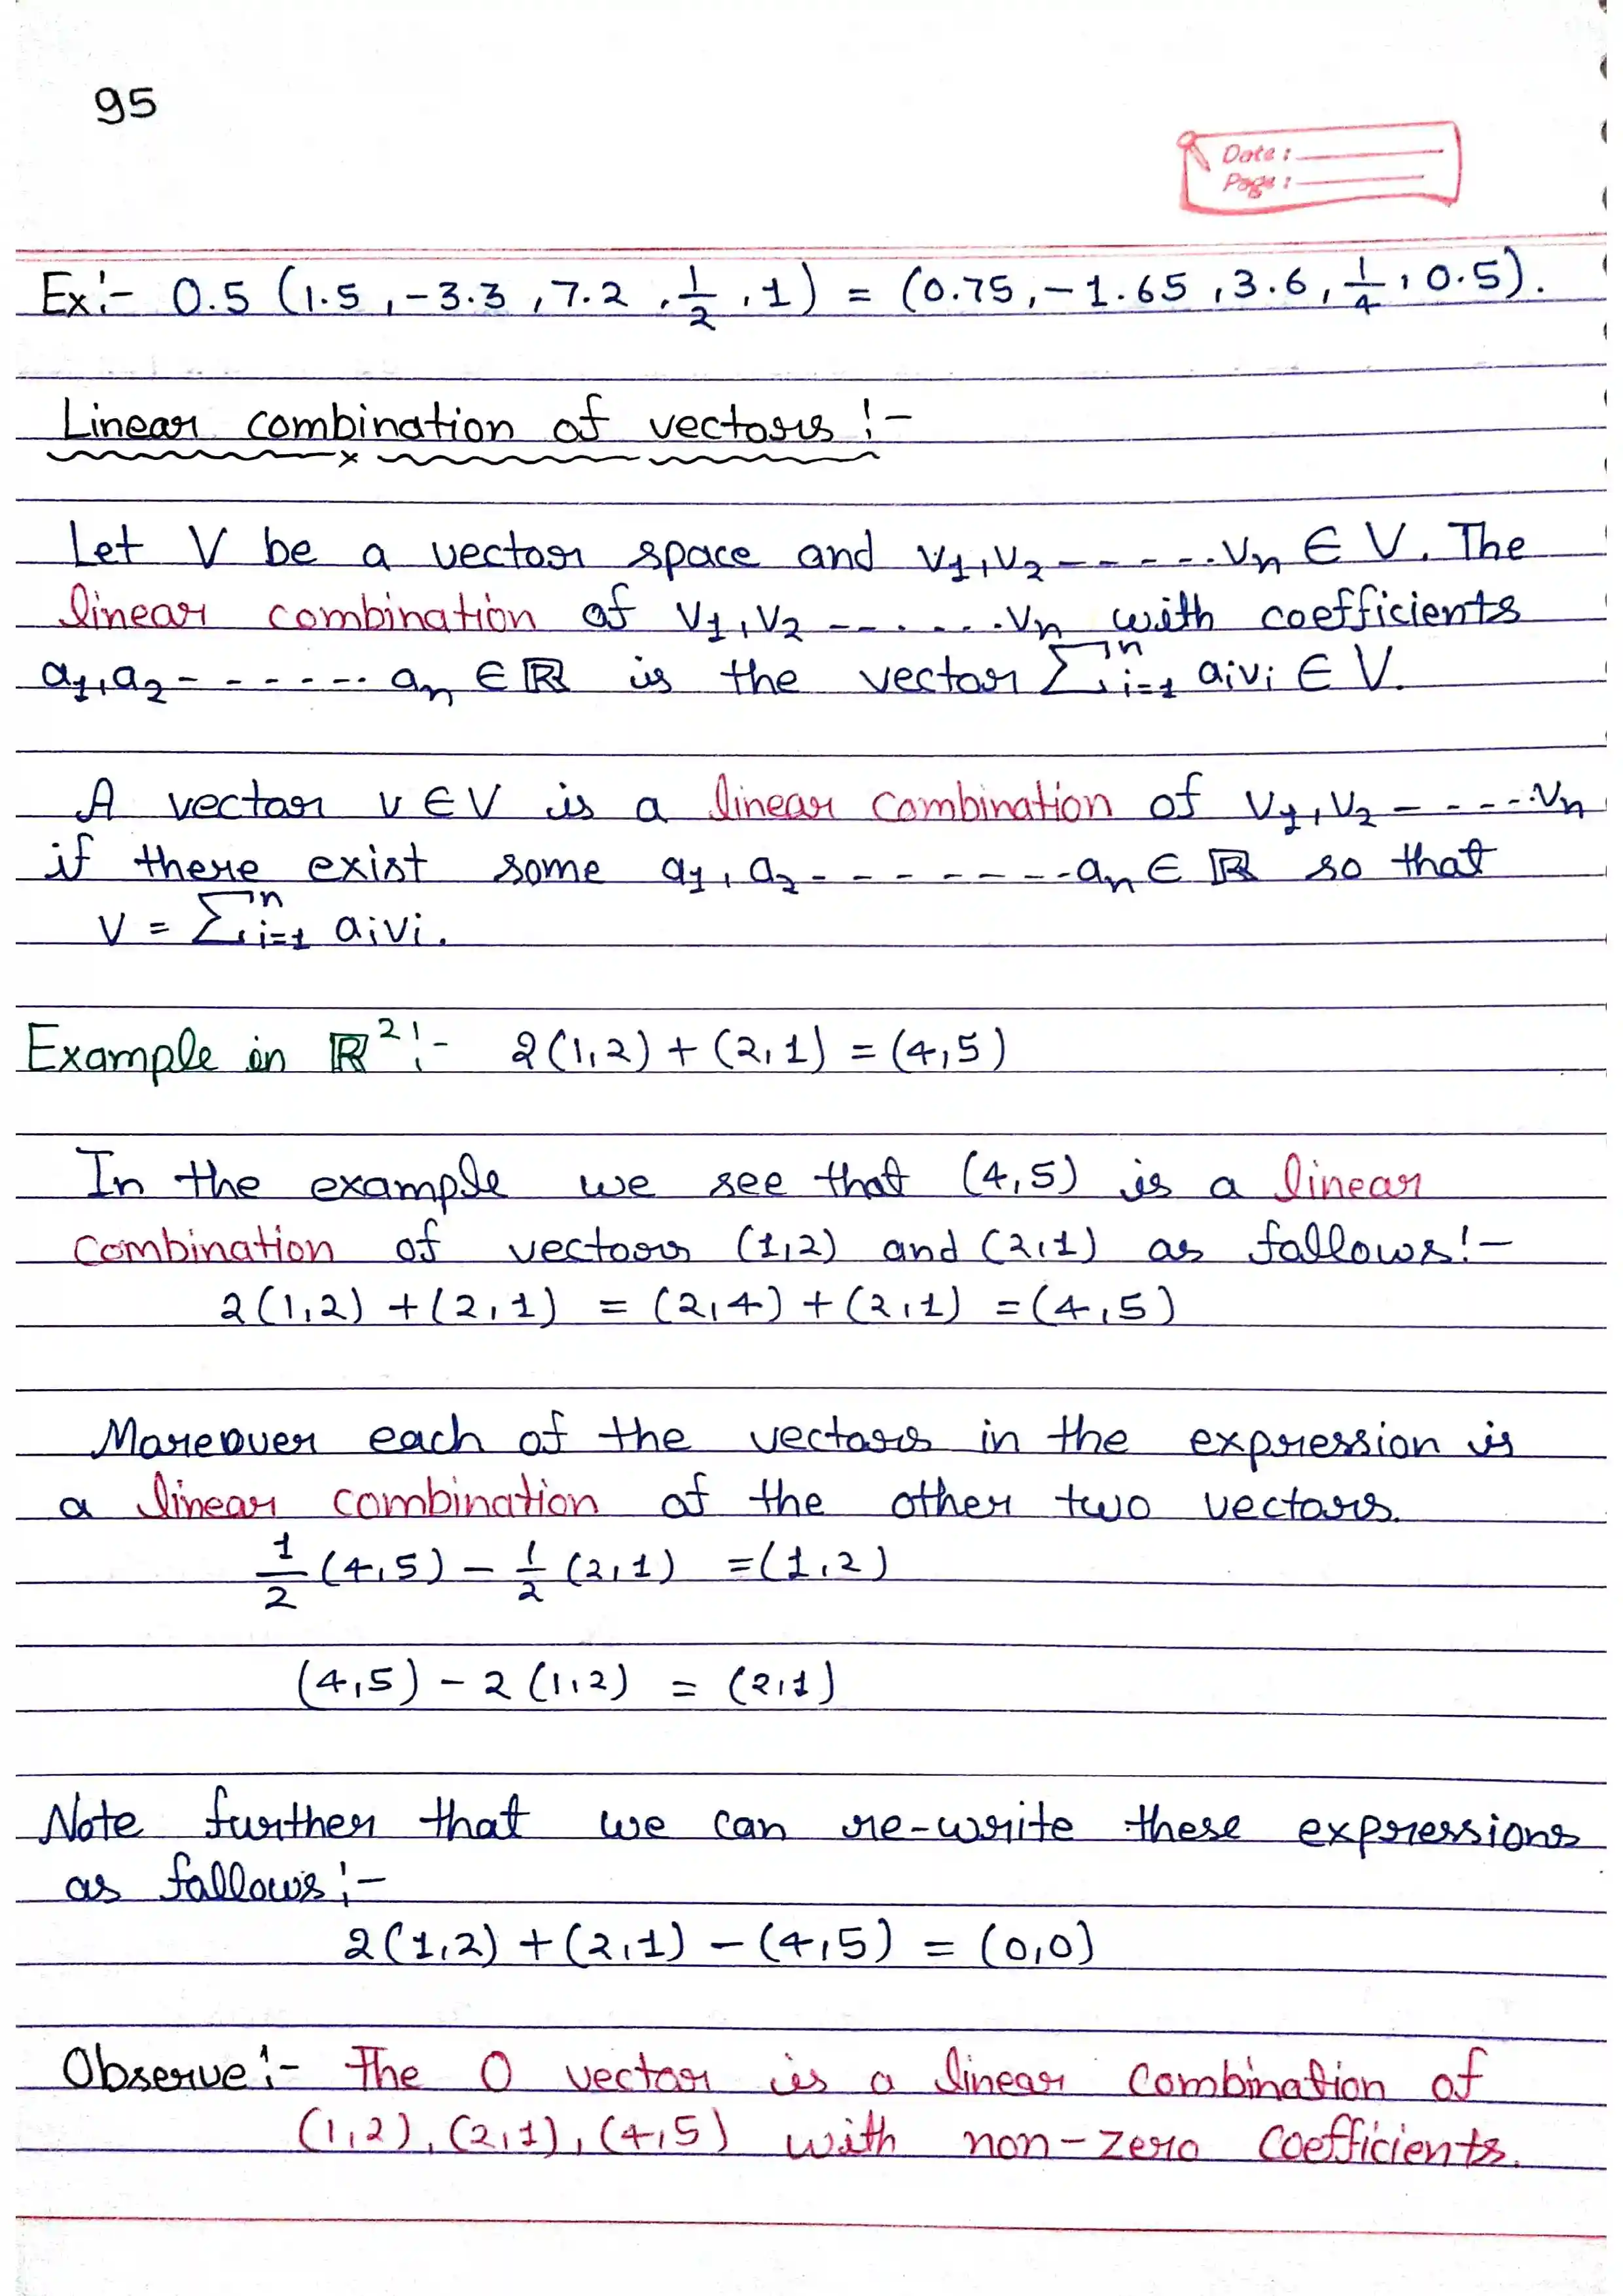 95
Date :
Page :
Ex:- 0.5 (1.5, -3.3, 7.2, 1/2, 1) = (0.75, -1.65, 3.6, 1/4, 0.5).
Linear combination of vectors :-
Let V be a vector space and v₁, v₂ ------ vₙ ∈ V. The
linear combination of v₁, v₂ ------- vₙ with coefficients
a₁, a₂ ------- aₙ ∈ ℝ is the vector ∑ⁿᵢ₌₁ aᵢvᵢ ∈ V.
A vector v ∈ V is a linear combination of v₁, v₂ ----- vₙ
if there exist some a₁, a₂ -------- aₙ ∈ ℝ so that
v = ∑ⁿᵢ₌₁ aᵢvᵢ.
Example in ℝ² :- 2(1,2) + (2,1) = (4,5)
In the example we see that (4,5) is a linear
combination of vectors (1,2) and (2,1) as follows :-
2(1,2) + (2,1) = (2,4) + (2,1) = (4,5)
Moreover each of the vectors in the expression is
a linear combination of the other two vectors.
1/2 (4,5) - 1/2 (2,1) = (1,2)
(4,5) - 2(1,2) = (2,1)
Note further that we can re-write these expressions
as follows :-
2(1,2) + (2,1) - (4,5) = (0,0)
Observe :- The 0 vector is a linear combination of
(1,2), (2,1), (4,5) with non-zero coefficients.